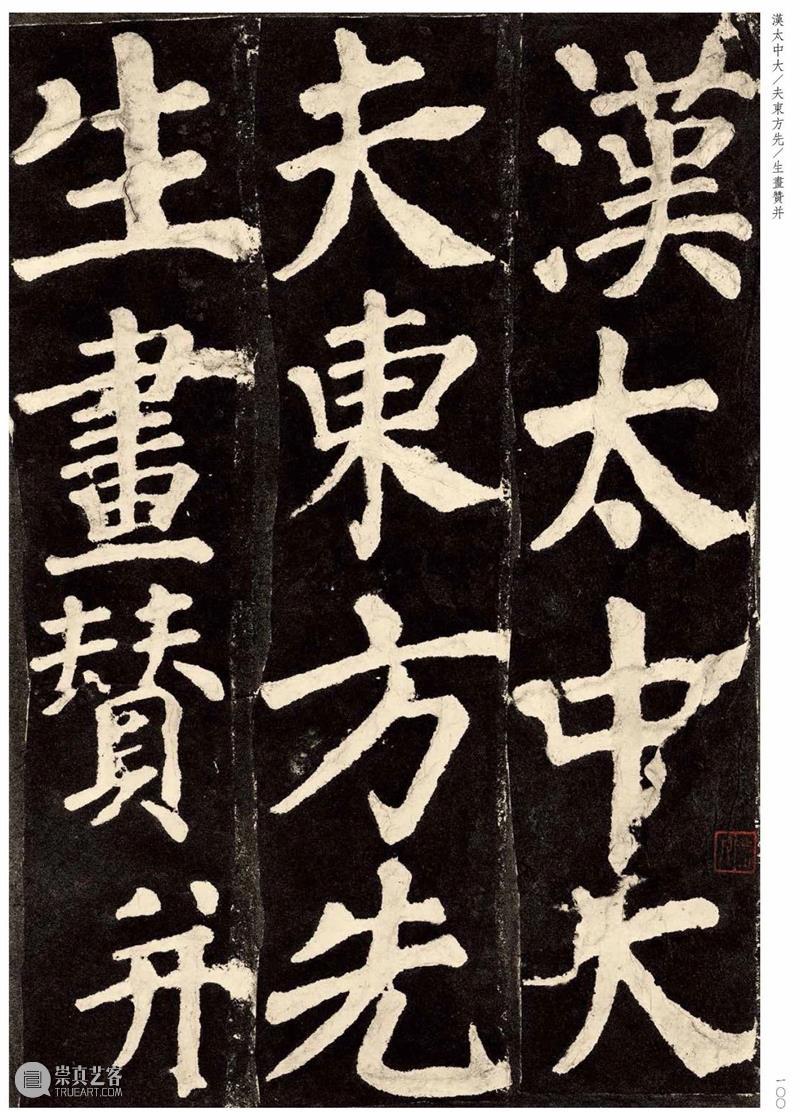 漢太中大
夫東方先
生畫贊并
漢太中大／夫東方先／生畫贊并
一〇〇
崇真艺客
TRUEART.COM